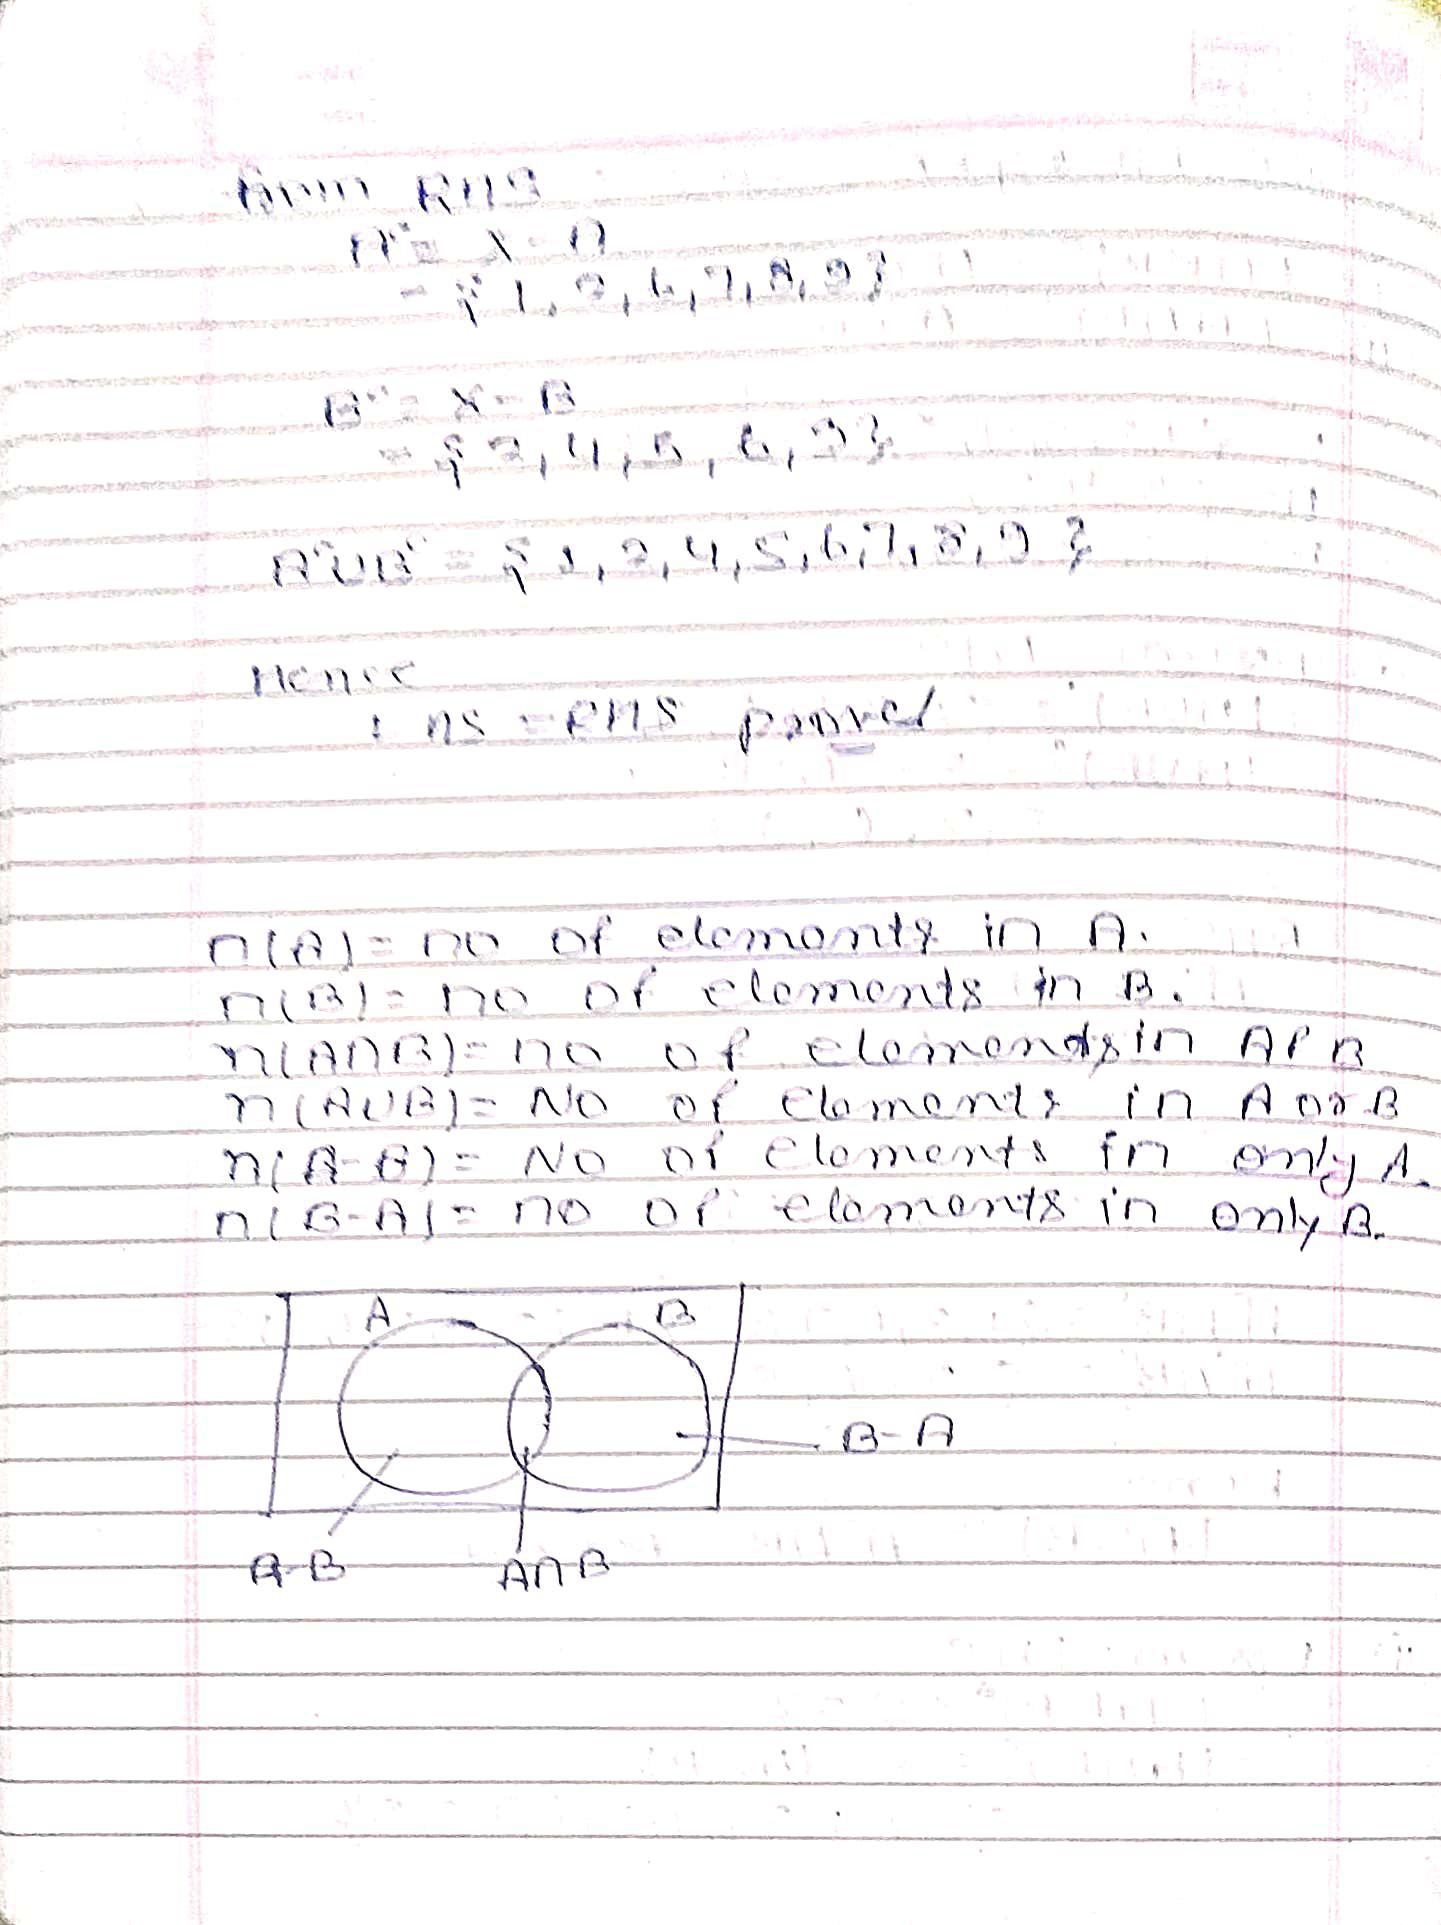 From RHS
Aᶜ = X - A
= { 1, 2, 6, 7, 8, 9 }
Bᶜ = X - B
= { 2, 4, 5, 6, 9 }
Aᶜ∪Bᶜ = { 1, 2, 4, 5, 6, 7, 8, 9 }
Hence
LHS = RHS proved
n(A) = no of elements in A.
n(B) = no of elements in B.
n(A∩B) = no of elements in A & B
n(A∪B) = No of Elements in A or B
n(A-B) = No of Elements in only A.
n(B-A) = no of elements in only B.
A B
B-A
A-B A∩B